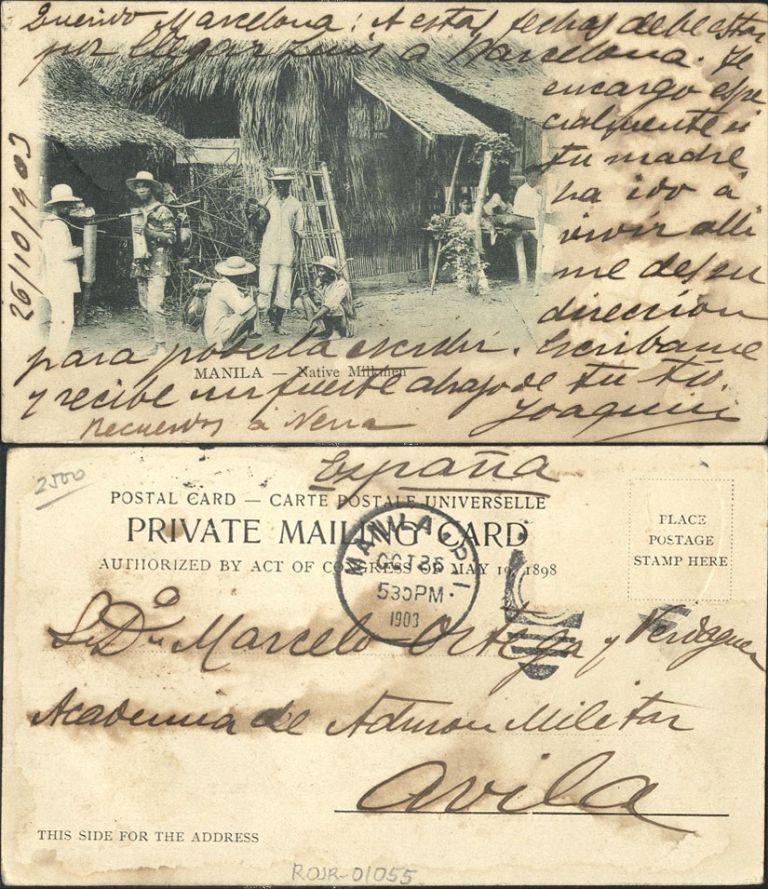 Querido Marcelona: A estas fechas debe estar
por llegar Luis a Barcelona. Te
encargo espe
cialmente si
tu madre
ha ido á
vivir alli
me des su
direccion
para poderla escribir. Escribame
y recibe un fuerte abrazo de tu tio.
Joaquin
Recuerdos á Nena
26/10/903
MANILA — Native Milkmen
España
2500
POSTAL CARD — CARTE POSTALE UNIVERSELLE
PRIVATE MAILING CARD
AUTHORIZED BY ACT OF CONGRESS OF MAY 19, 1898
PLACE
POSTAGE
STAMP HERE
MANILA P.I.
OCT 26
530PM
1903
Sr Dn Marcelo Ortega y Verdaguer
Academia de Admon Militar
Avila
THIS SIDE FOR THE ADDRESS
ROJR-01055